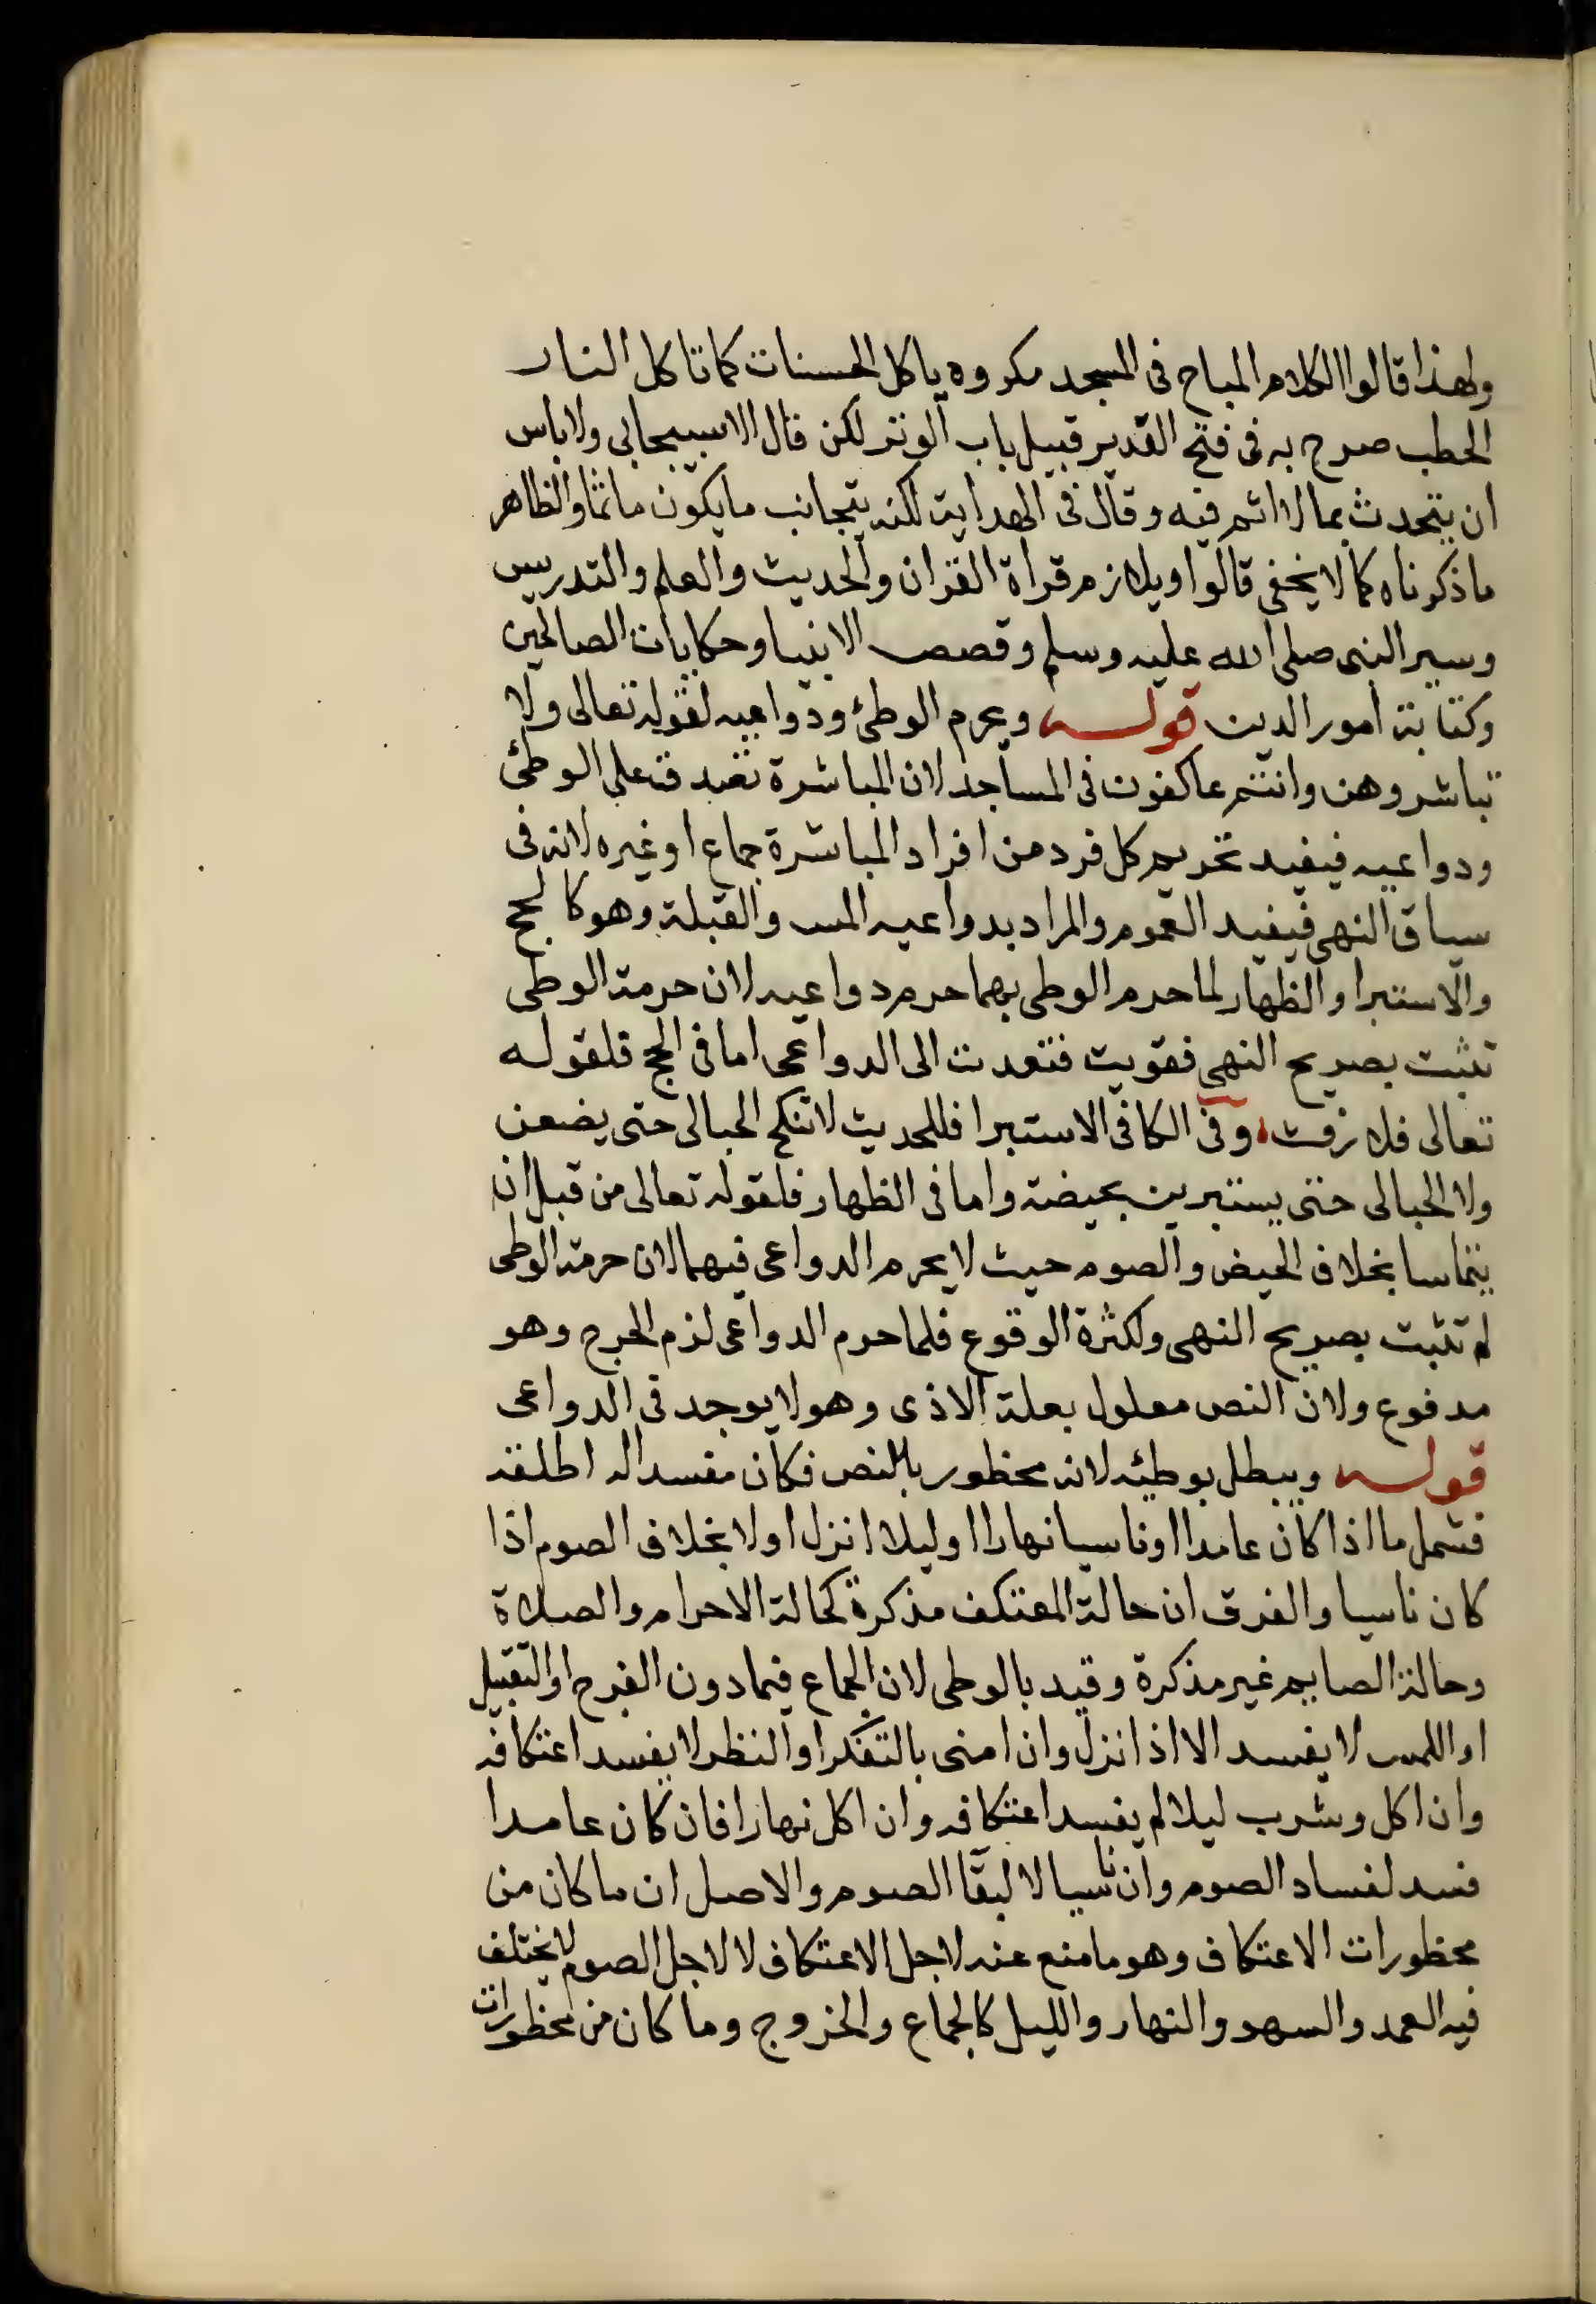 ولهذا قالوا الكلام المباح فى المسجد مكروه ياكل الحسنات كما تاكل النار
الحطب صرح به فى فتح القدير قبيل باب الوتر لكن قال الاسبيجابى ولا باس
ان يتحدث بما لا اثم فيه وقال فى الهداية لكنه يتجانب ما يكون ماثما والظاهر
ما ذكرناه كما لا يخفى قالوا ويلازم قراة القران والحديث والعلم والتدريس
وسير النبى صلى الله عليه وسلم وقصص الانبيا وحكايات الصالحين
وكتابة امور الدين قوله ويحرم الوطئ ودواعيه لقوله تعالى ولا
تباشروهن وانتم عاكفون فى المساجد لان المباشرة تصدق على الوطئ
ودواعيه فيفيد تحريم كل فرد من افراد المباشرة جماع او غيره لانه فى
سياق النهى فيفيد العموم والمراد بدواعيه المس والقبلة وهو كالحج
والاستبرا والظهار لما حرم الوطى بهما حرم دواعيه لان حرمة الوطى
تثبت بصريح النهى فقويت فتعدت الى الدواعى اما فى الحج فلقوله
تعالى فلا رفث وفى الكافى الاستبرا فللحديث لا تنكح الحبالى حتى يضعن
ولا الحبالى حتى يستبرين بحيضة واما فى الظهار فلقوله تعالى من قبل ان
يتماسا بخلاف الحيض والصوم حيث لا يحرم الدواعى فيهما لان حرمة الوطى
لم تثبت بصريح النهى ولكثرة الوقوع فلما حرم الدواعى لزم الحرج وهو
مدفوع ولان النص معلول بعلة الاذى وهو لا يوجد فى الدواعى
قوله ويبطل بوطئه لانه محظور بالنص فكان مفسدا له اطلقه
فشمل ما اذا كان عامدا او ناسيا نهارا او ليلا انزل او لا بخلاف الصوم اذا
كان ناسيا والفرق ان حالة المعتكف مذكرة كحالة الاحرام والصلاة
وحالة الصايم غير مذكرة وقيد بالوطى لان الجماع فيما دون الفرج او التقبيل
او اللمس لا يفسد الا اذا انزل وان امنى بالتفكر او النظر لا يفسد اعتكافه
وان اكل وشرب ليلا لم يفسد اعتكافه وان اكل نهارا فان كان عامدا
فسد لفساد الصوم وان ناسيا لا لبقا الصوم والاصل ان ما كان من
محظورات الاعتكاف وهو ما منع عنه لاجل الاعتكاف لا لاجل الصوم لا يختلف
فيه العمد والسهو والنهار والليل كالجماع والخروج وما كان من محظورات